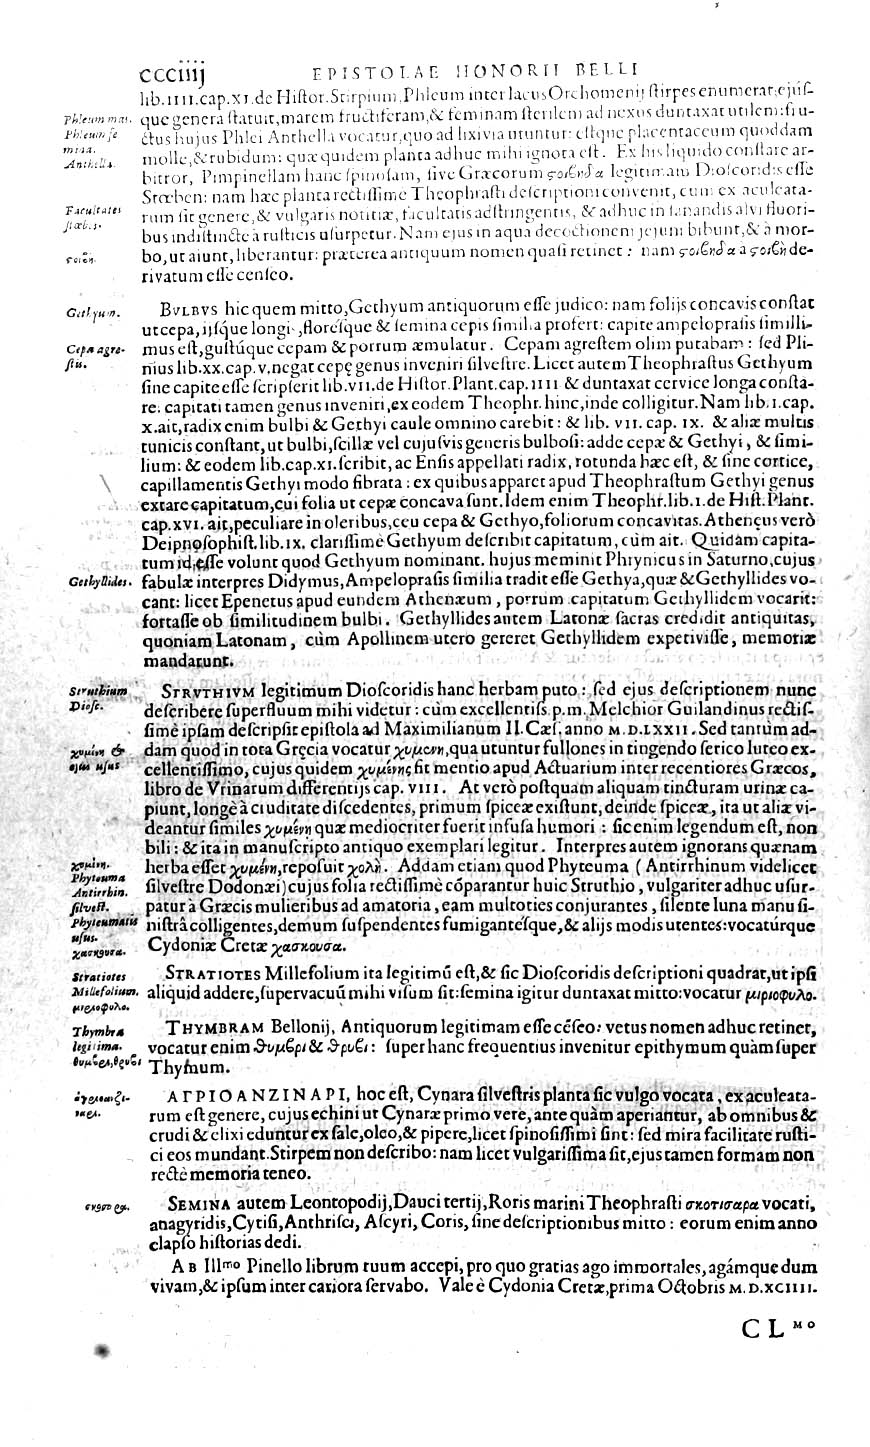 ccciiij EPISTOLAE HONORII BELLI
lib. IIII. cap. XI. de Hiſtor. Stirpium, Phleum inter lacus Orchomenij ſtirpes enumerat, ejuſ-
que genera ſtatuit, marem fructiferam, & feminam ſterilem ad nexus duntaxat utilem: fru-
ctus hujus Phlei Anthella vocatur, quo ad lixivia utuntur: eſtque placentaceum quoddam
molle, & rubidum: quæ quidem planta adhuc mihi ignota eſt. Ex his liquido conſtare ar-
bitror, Pimpinellam hanc ſpinoſam, ſive Græcorum ςοιβηδα legitimam Dioſcoridis eſſe
Stœben: nam hæc planta rectiſſime Theophraſti deſcriptioni convenit, cum ex aculeata-
rum ſit genere, & vulgaris notitiæ, facultatis adſtringentis, & adhuc in ſanandis alvi fluori-
bus indiſtincte à ruſticis uſurpetur. Nam ejus in aqua decoctionem jejuni bibunt, & à mor-
bo, ut aiunt, liberantur: præterea antiquum nomen quaſi retinet: nam ςοιβηδα à ςοιβὴ de-
rivatum eſſe cenſeo.
Phleum mas.
Phleum fe
mina.
Anthella.
Facultates
ſtœbis.
ςοιβή.
BVLBVS hic quem mitto, Gethyum antiquorum eſſe judico: nam folijs concavis conſtat
ut cepa, ijſque longis, floréſque & ſemina cepis ſimilia profert: capite ampelopraſis ſimilli-
mus eſt, guſtúque cepam & porrum æmulatur. Cepam agreſtem olim putabam: ſed Pli-
nius lib. XX. cap. V. negat cepę genus inveniri ſilveſtre. Licet autem Theophraſtus Gethyum
ſine capite eſſe ſcripſerit lib. VII. de Hiſtor. Plant. cap. IIII & duntaxat cervice longa conſta-
re, capitati tamen genus inveniri, ex eodem Theophr. hinc, inde colligitur. Nam lib. I. cap.
X. ait, radix enim bulbi & Gethyi caule omnino carebit: & lib. VII. cap. IX. & aliæ multis
tunicis conſtant, ut bulbi, ſcillæ vel cujuſvis generis bulboſi: adde cepæ & Gethyi, & ſimi-
lium: & eodem lib. cap. XI. ſcribit, ac Enſis appellati radix, rotunda hæc eſt, & ſine cortice,
capillamentis Gethyi modo fibrata: ex quibus apparet apud Theophraſtum Gethyi genus
extare capitatum, cui folia ut cepæ concava ſunt. Idem enim Theophr. lib. I. de Hiſt. Plant.
cap. XVI. ait, peculiare in oleribus, ceu cepa & Gethyo, foliorum concavitas. Athenęus verò
Deipnoſophiſt. lib. IX. clariſſimè Gethyum deſcribit capitatum, cùm ait. Quidam capita-
tum id, eſſe volunt quod Gethyum nominant. hujus meminit Phrynicus in Saturno, cujus
fabulæ interpres Didymus, Ampelopraſis ſimilia tradit eſſe Gethya, quæ & Gethyllides vo-
cant: licet Epenetus apud eundem Athenæum, porrum capitatum Gethyllidem vocarit:
fortaſſe ob ſimilitudinem bulbi. Gethyllides autem Latonæ ſacras credidit antiquitas,
quoniam Latonam, cùm Apollinem utero gereret Gethyllidem expetiviſſe, memoriæ
mandarunt.
Gethyum.
Cepa agre-
ſtis.
Gethyllides.
STRVTHIVM legitimum Dioſcoridis hanc herbam puto: ſed ejus deſcriptionem nunc
deſcribere ſuperfluum mihi videtur: cùm excellentiſs. p. m. Melchior Guilandinus rectiſ-
ſimè ipſam deſcripſit epiſtola ad Maximilianum II. Cæſ. anno M.D.LXXII. Sed tantùm ad-
dam quod in tota Gręcia vocatur χυμενη, qua utuntur fullones in tingendo ſerico luteo ex-
cellentiſſimo, cujus quidem χυμένης fit mentio apud Actuarium inter recentiores Græcos,
libro de Vrinarum differentijs cap. VIII. At verò poſtquam aliquam tincturam urinæ ca-
piunt, longè à cruditate diſcedentes, primum ſpiceæ exiſtunt, deinde ſpiceæ, ita ut aliæ vi-
deantur ſimiles χυμένη quæ mediocriter fuerit infuſa humori: ſic enim legendum eſt, non
bili: & ita in manuſcripto antiquo exemplari legitur. Interpres autem ignorans quænam
herba eſſet χυμένη, repoſuit χολὴ. Addam etiam quod Phyteuma (Antirrhinum videlicet
ſilveſtre Dodonæi) cujus folia rectiſſimè cõparantur huic Struthio, vulgariter adhuc uſur-
patur à Græcis mulieribus ad amatoria, eam multoties conjurantes, ſilente luna manu ſi-
niſtrâ colligentes, demum ſuſpendentes fumigantéſque, & alijs modis utentes: vocatúrque
Cydoniæ Cretæ χασκουσα.
Struthium
Dioſc.
χυμένη &
ejus uſus
χυμένη.
Phyteuma
Antirrhin.
ſilveſt.
Phyteumatis
uſus.
χασκουσα.
STRATIOTES Millefolium ita legitimũ eſt, & ſic Dioſcoridis deſcriptioni quadrat, ut ipſi
aliquid addere, ſupervacuũ mihi viſum ſit: ſemina igitur duntaxat mitto: vocatur μιριοφυλο.
Stratiotes
Millefolium.
μιριοφυλο.
THYMBRAM Bellonij, Antiquorum legitimam eſſe cẽſeo: vetus nomen adhuc retinet,
vocatur enim ϑυμβρι & ϑρυβι: ſuper hanc frequentius invenitur epithymum quàm ſuper
Thymum.
Thymbra
legitima.
θυμβρι, θρυβι
ΑΓΡΙΟΑΝΖΙΝΑΡΙ, hoc eſt, Cynara ſilveſtris planta ſic vulgo vocata, ex aculeata-
rum eſt genere, cujus echini ut Cynaræ primo vere, ante quàm aperiantur, ab omnibus &
crudi & elixi eduntur ex ſale, oleo, & pipere, licet ſpinoſiſſimi ſint: ſed mira facilitate ruſti-
ci eos mundant. Stirpem non deſcribo: nam licet vulgariſſima ſit, ejus tamen formam non
rectè memoria teneo.
SEMINA autem Leontopodij, Dauci tertij, Roris marini Theophraſti σκοτισαρα vocati,
anagyridis, Cytiſi, Anthriſci, Aſcyri, Coris, ſine deſcriptionibus mitto: eorum enim anno
elapſo hiſtorias dedi.
AB Illmo Pinello librum tuum accepi, pro quo gratias ago immortales, agámque dum
vivam, & ipſum inter cariora ſervabo. Vale è Cydonia Cretæ, prima Octobris M.D.XCIIII.
CL MO